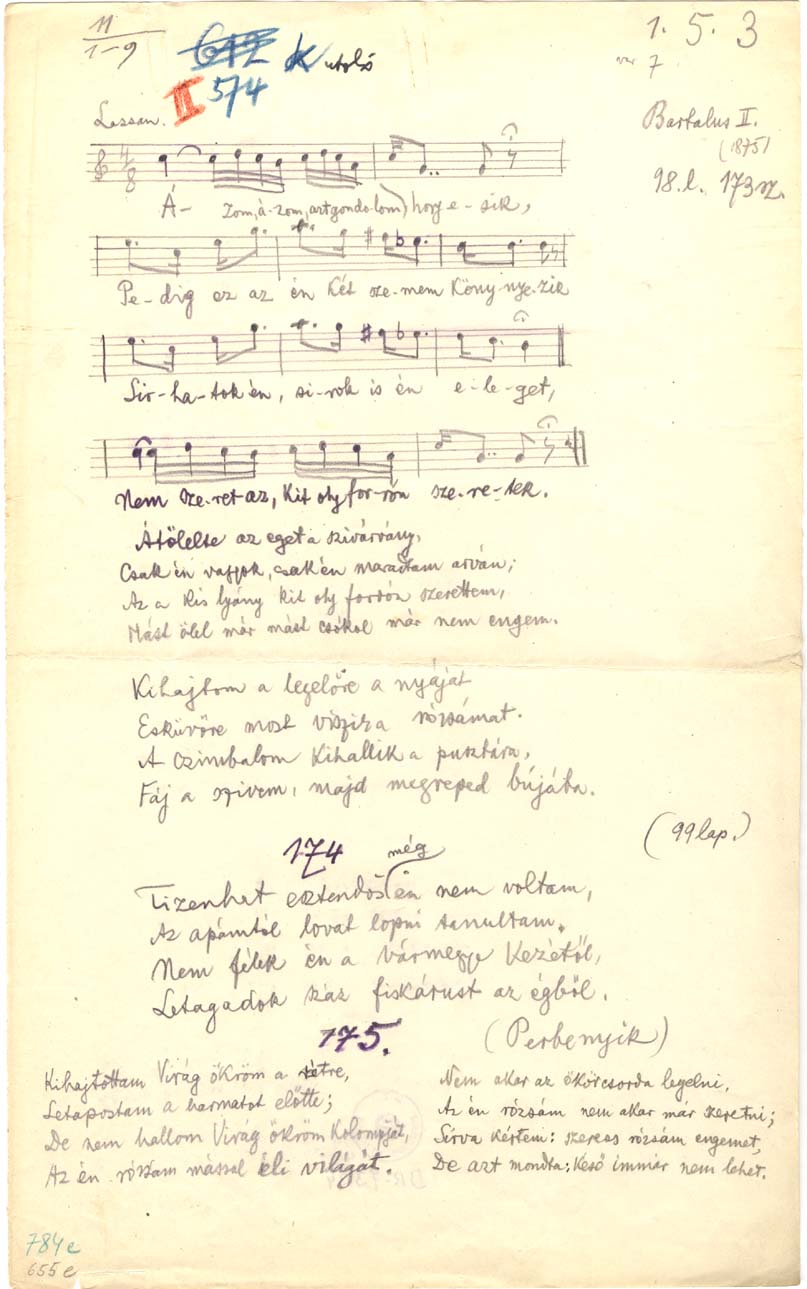 11
1-9
612 K utolsó
II 574
1. 5. 3
var 7
Lassan.
Bartalus II.
(1875)
98.l. 173 sz.
4/8
Á- zom, á-zom, azt gondo-lom) hogy e-sik,
Pe-dig ez az én két sze-mem köny-nye-zik
Sír-ha-tok én, sí-rok is én e-le-get,
Nem sze-ret az, kit oly for-rón sze-re-tek.
Átölelte az eget a szivárvány,
Csak én vagyok, csak én maradtam árván;
Az a kis lyány kit oly forrón szerettem,
Mást ölel már mást csókol már nem engem.
Kihajtom a legelőre a nyáját
Esküvőre most viszik a rózsámat.
A czimbalom kihallik a pusztára,
Fáj a szivem, majd megreped bújába.
(99 lap.)
174 még
Tizenhat esztendős én nem voltam,
Az apámtól lovat lopni tanultam.
Nem félek én a vármegye kezétől,
Letagadok száz fiskárust az égből.
175. (Perbenyik)
Kihajtottam Virág ökröm a rétre,
Letapostam a harmatot előtte;
De nem hallom Virág ökröm kolompját,
Az én rózsám mással éli világát.
Nem akar az ökörcsorda legelni,
Az én rózsám nem akar már szeretni;
Sírva kértem: szeress rózsám engemet,
De azt mondta: Késő immár nem lehet.
784 e
655 e